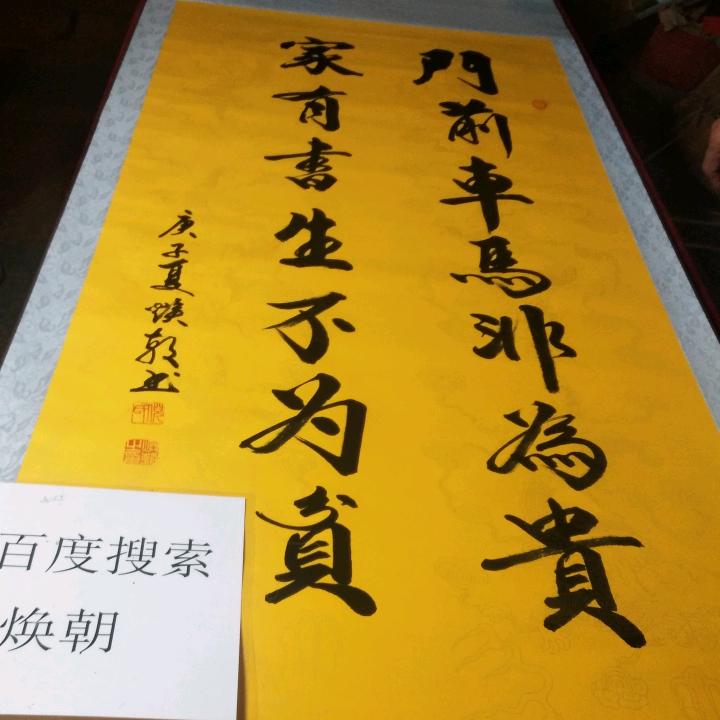 門前車馬非為貴
家有書生不为貧
庚子夏焕朝书
百度搜索
焕朝